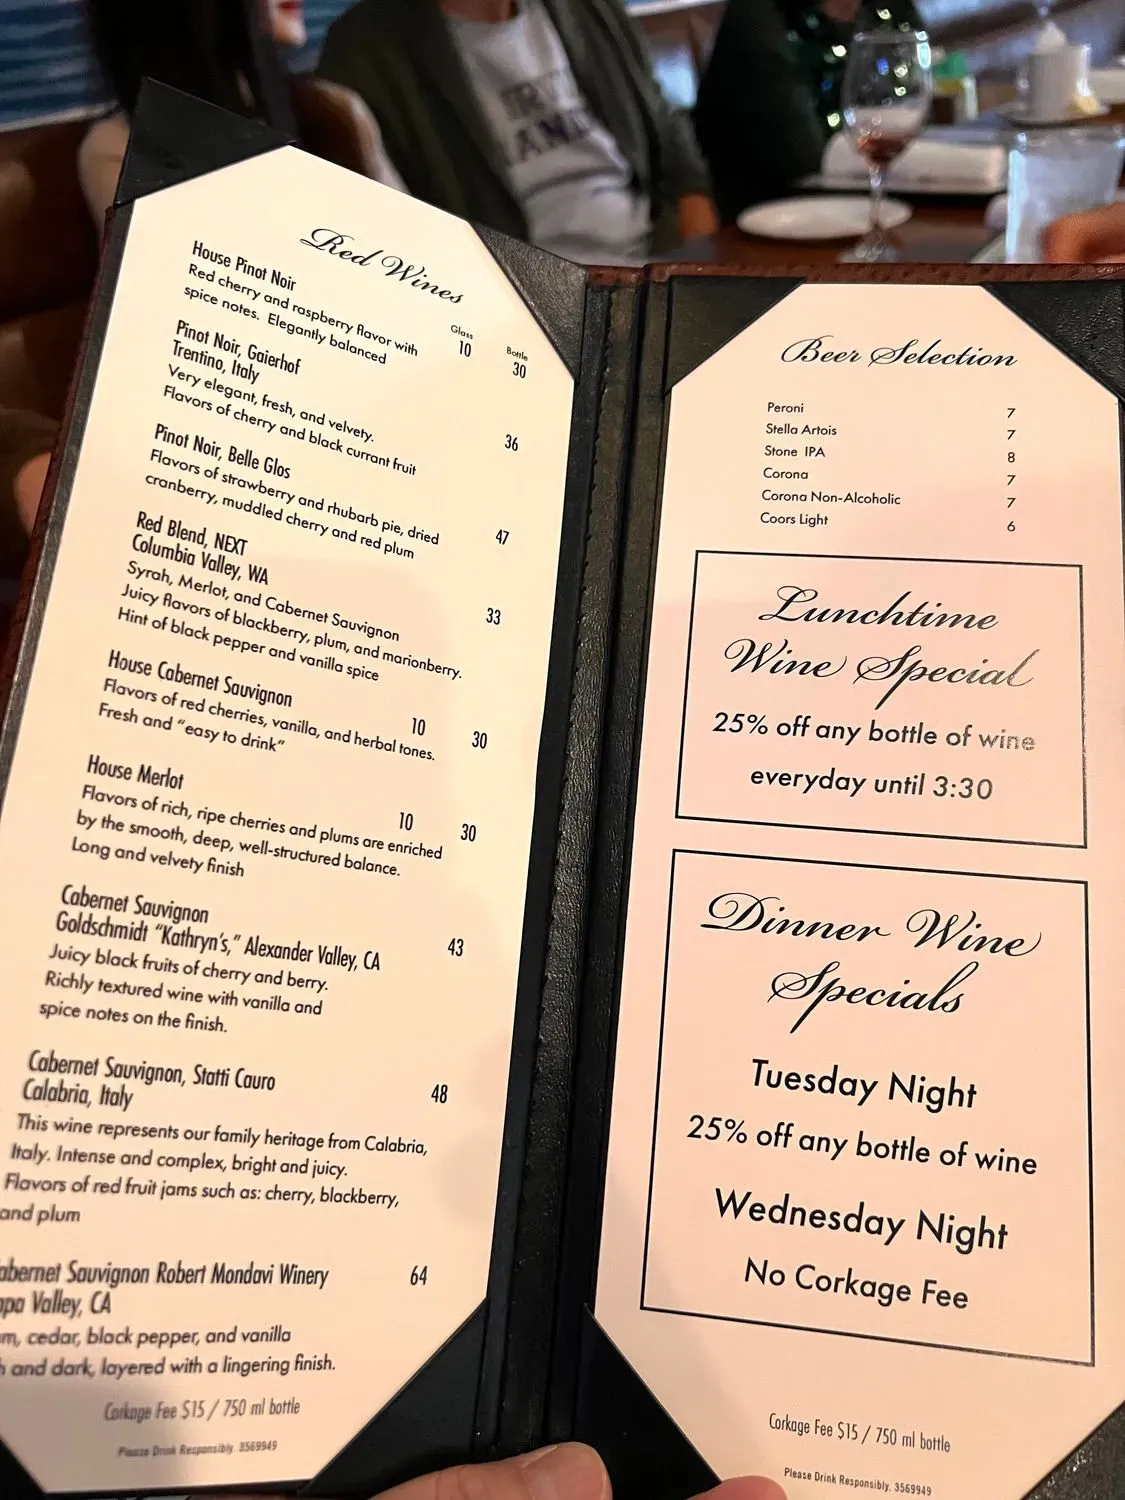 Red Wines
Glass Bottle
House Pinot Noir 10 30
Red cherry and raspberry flavor with
spice notes. Elegantly balanced
Pinot Noir, Gaierhof
Trentino, Italy
Very elegant, fresh, and velvety. 36
Flavors of cherry and black currant fruit
Pinot Noir, Belle Glos
Flavors of strawberry and rhubarb pie, dried 47
cranberry, muddled cherry and red plum
Red Blend, NEXT
Columbia Valley, WA
Syrah, Merlot, and Cabernet Sauvignon 33
Juicy flavors of blackberry, plum, and marionberry.
Hint of black pepper and vanilla spice
House Cabernet Sauvignon 10 30
Flavors of red cherries, vanilla, and herbal tones.
Fresh and "easy to drink"
House Merlot 10 30
Flavors of rich, ripe cherries and plums are enriched
by the smooth, deep, well-structured balance.
Long and velvety finish
Cabernet Sauvignon
Goldschmidt "Kathryn's," Alexander Valley, CA 43
Juicy black fruits of cherry and berry.
Richly textured wine with vanilla and
spice notes on the finish.
Cabernet Sauvignon, Statti Cauro
Calabria, Italy 48
This wine represents our family heritage from Calabria,
Italy. Intense and complex, bright and juicy.
Flavors of red fruit jams such as: cherry, blackberry,
and plum
abernet Sauvignon Robert Mondavi Winery 64
pa Valley, CA
m, cedar, black pepper, and vanilla
h and dark, layered with a lingering finish.
Corkage Fee $15 / 750 ml bottle
Please Drink Responsibly. 3569949
Beer Selection
Peroni 7
Stella Artois 7
Stone IPA 8
Corona 7
Corona Non-Alcoholic 7
Coors Light 6
Lunchtime
Wine Special
25% off any bottle of wine
everyday until 3:30
Dinner Wine
Specials
Tuesday Night
25% off any bottle of wine
Wednesday Night
No Corkage Fee
Corkage Fee $15 / 750 ml bottle
Please Drink Responsibly. 3569949